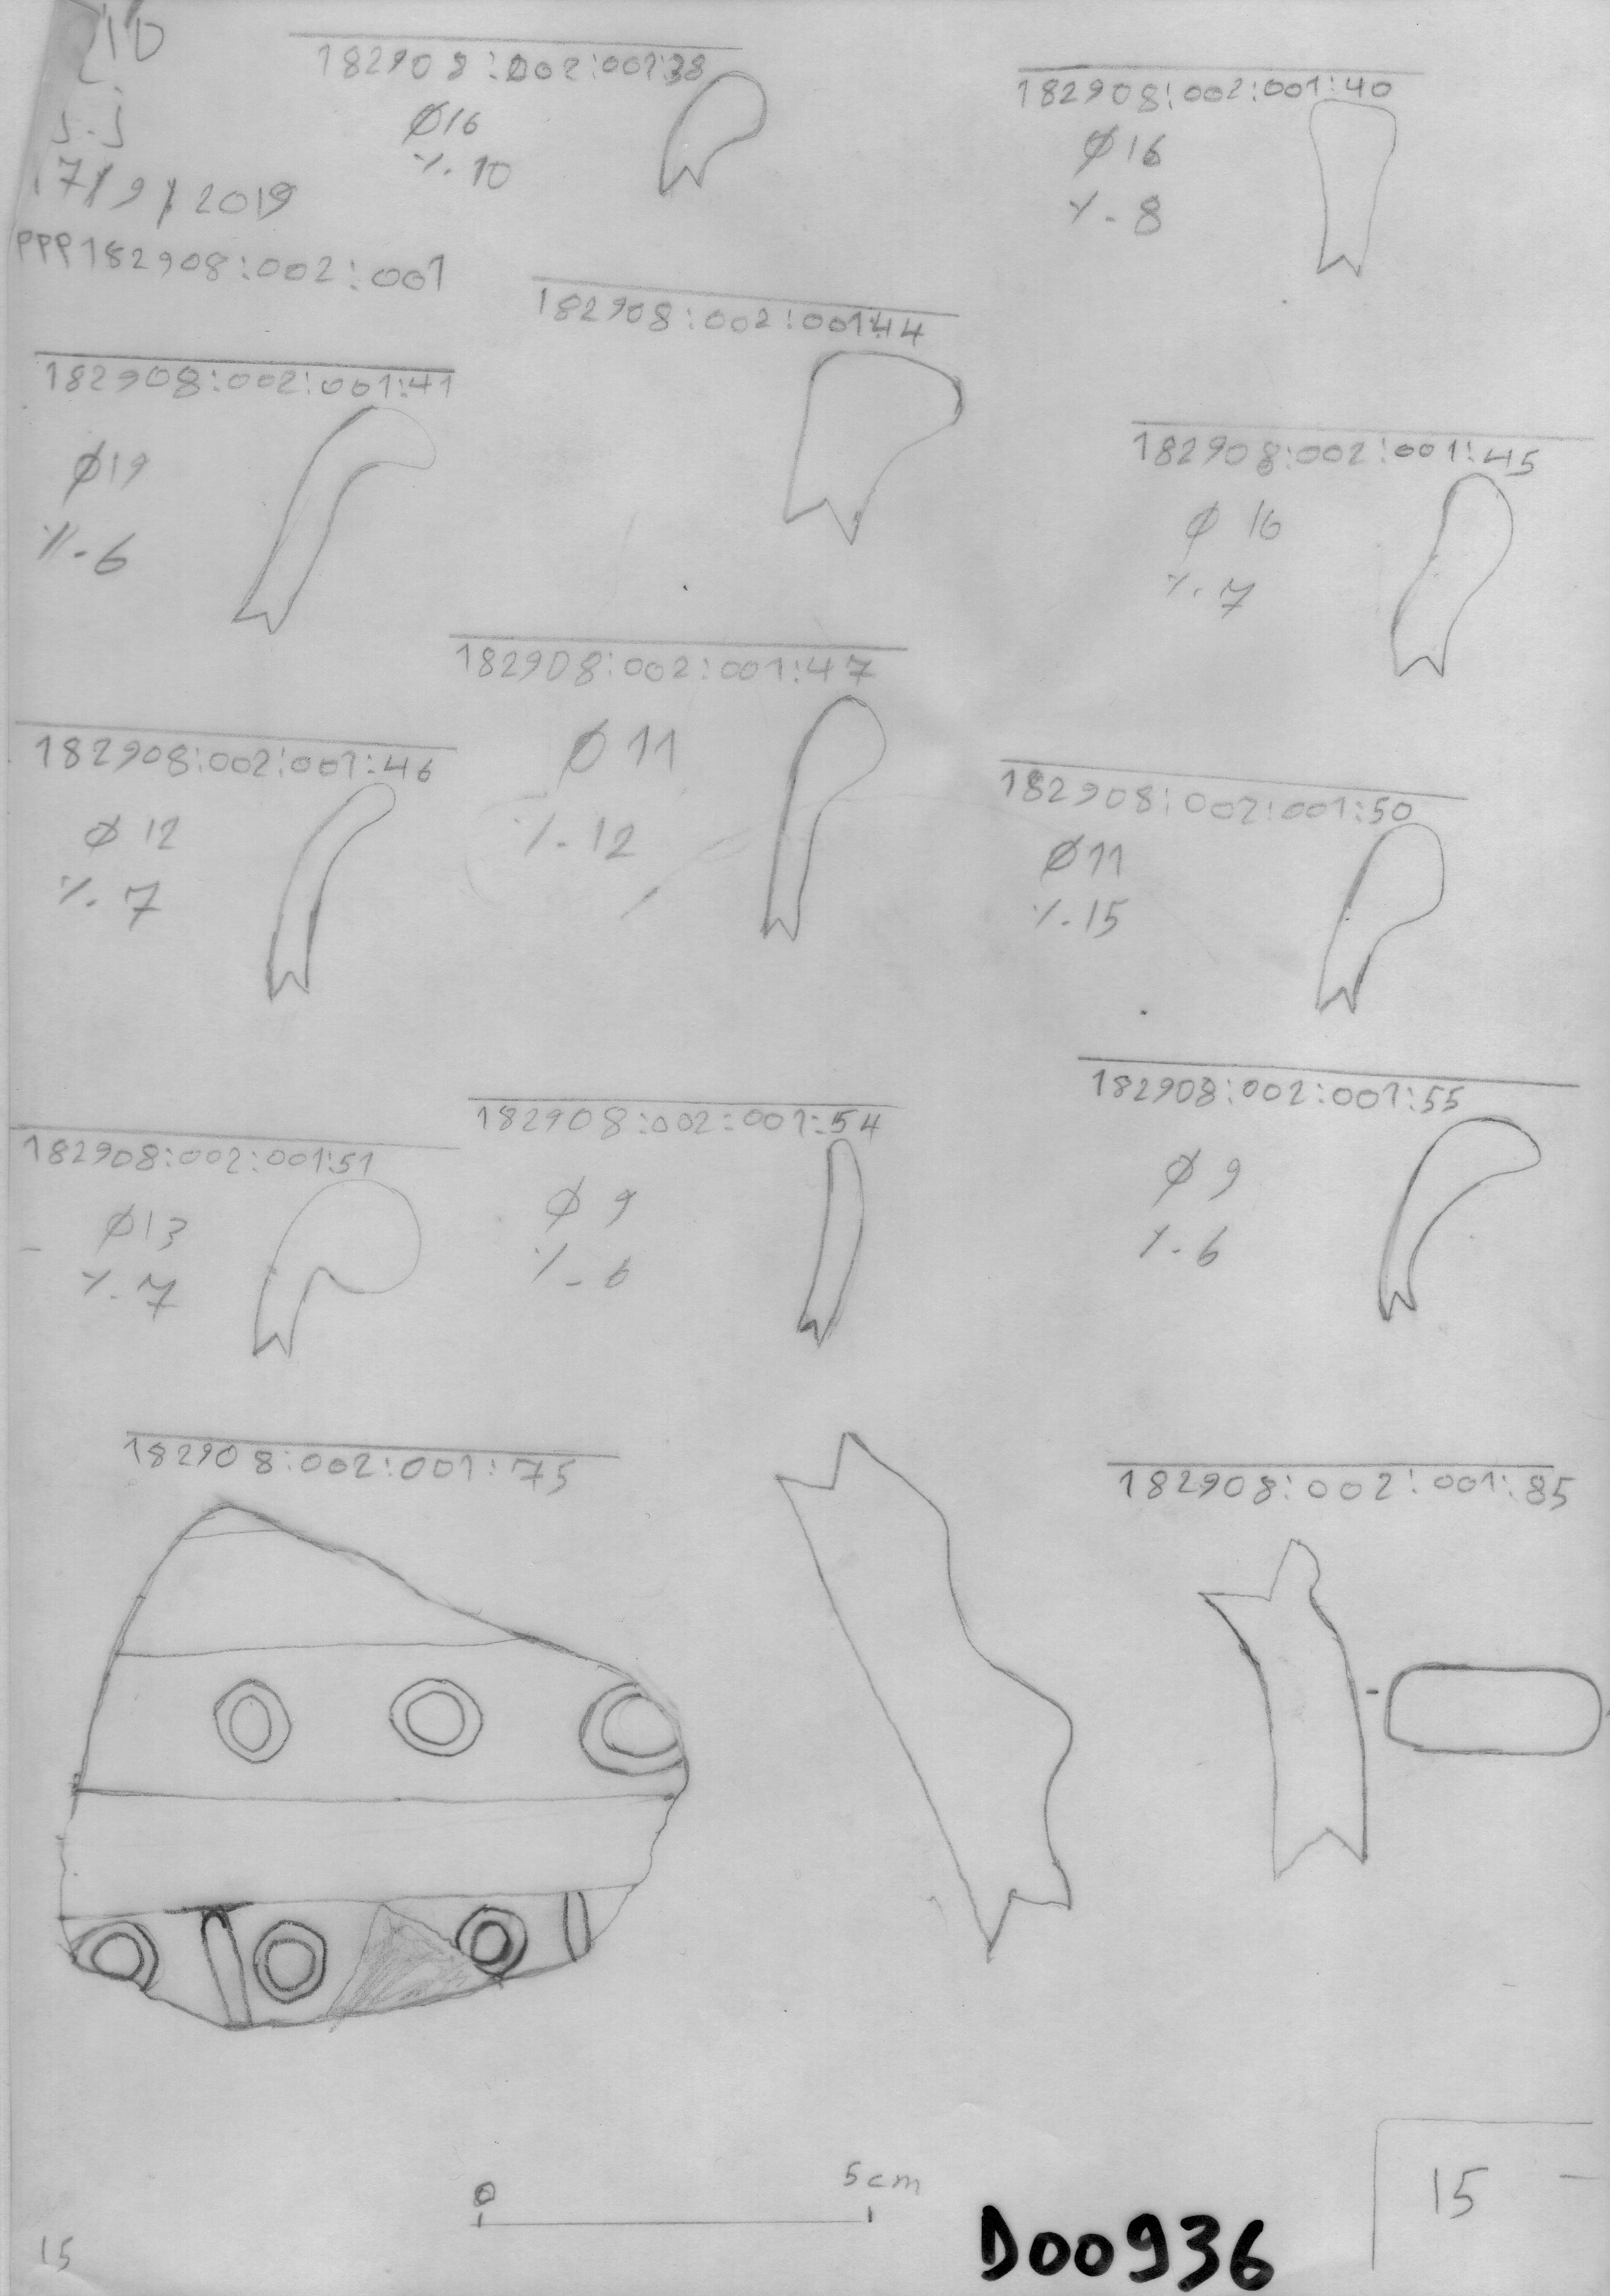 J.J
17/9/2019
PPP182908:002:001
182908:002:001:38
Ø16
%. 10
182908:002:001:40
Ø16
%. 8
182908:002:001:41
Ø19
%. 6
182908:002:001:44
182908:002:001:45
Ø 16
%. 7
182908:002:001:46
Ø 12
%. 7
182908:002:001:47
Ø 11
%. 12
182908:002:001:50
Ø11
%. 15
182908:002:001:51
Ø13
%. 7
182908:002:001:54
Ø 9
%. 6
182908:002:001:55
Ø 9
%. 6
182908:002:001:75
182908:002:001:85
0 5cm
D00936
15
15